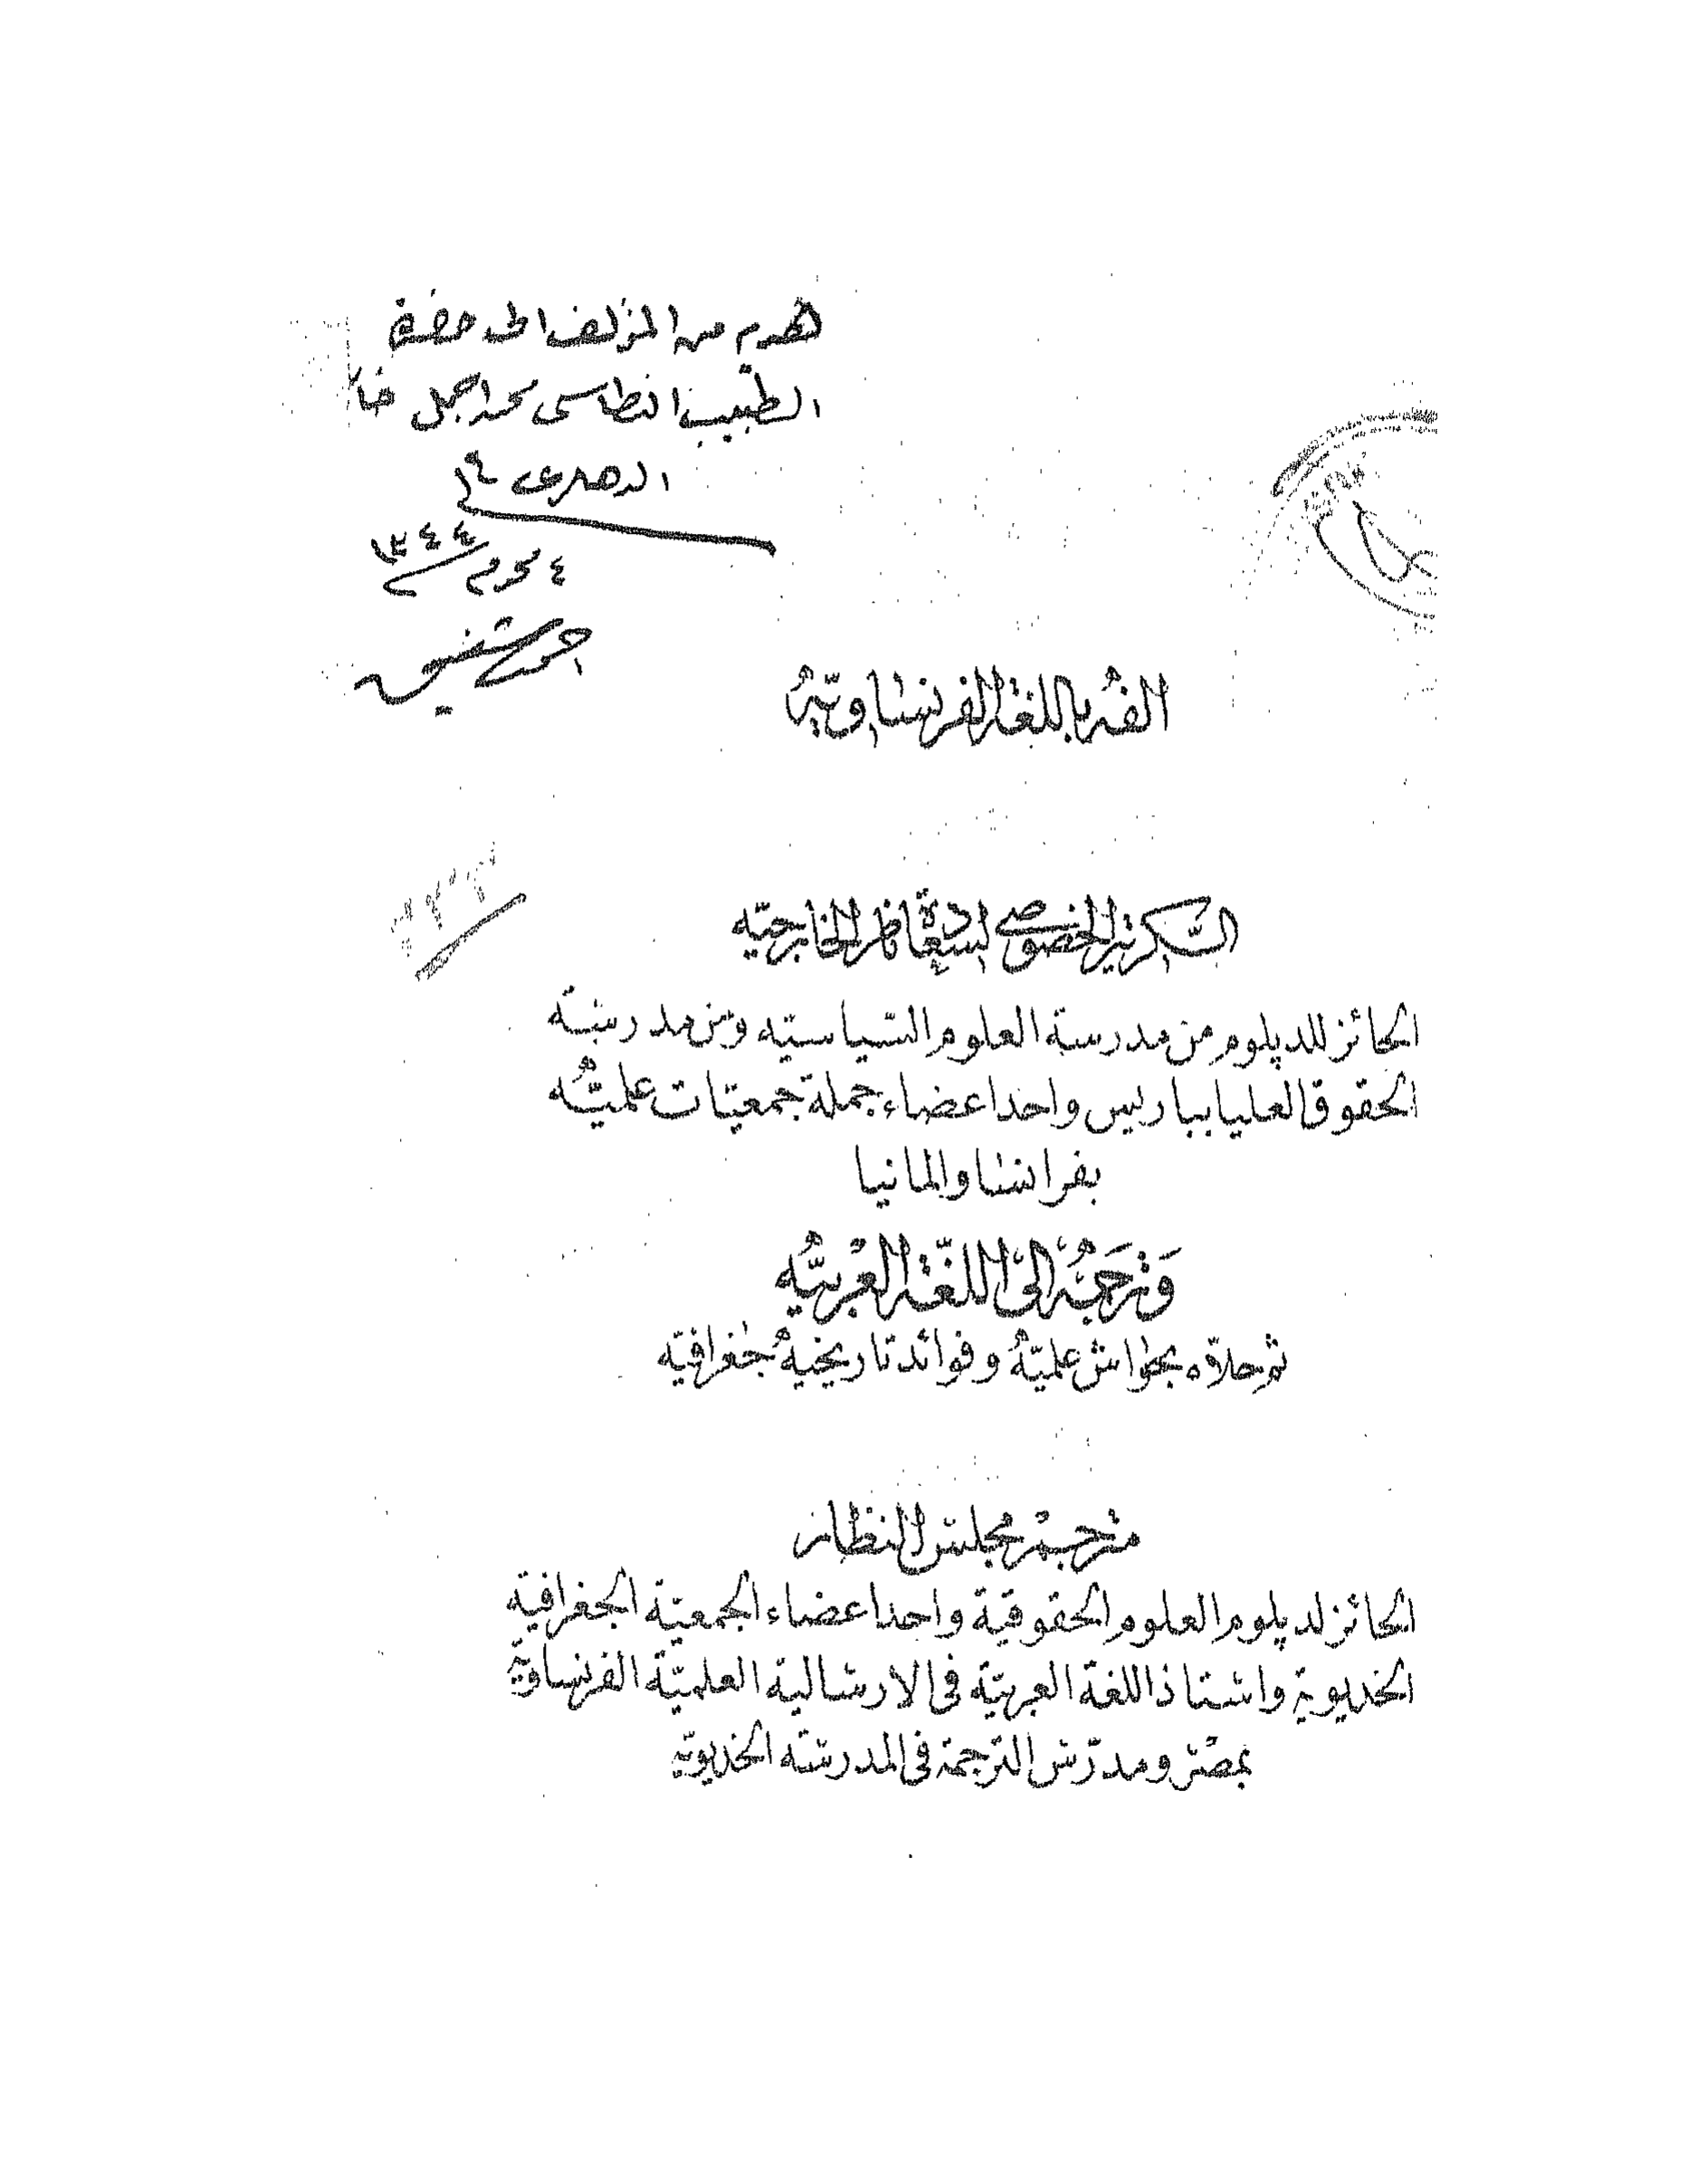 هدية من المؤلف الى حضرة
الطبيب النطاسى محمد اجمل خان
الدهلوى
٤ محرم ١٣٤٤
احمد شفيق
الفه باللغة الفرنساوية
السكرتير الخصوصي لسعادة ناظر الخارجية
الحائز للدپلوم من مدرسة العلوم السياسيّه ومن مدرسة
الحقوق العليا بباريس واحد اعضاء جملة جمعيّات علميّه
بفرانسا والمانيا
وَترجمَهُ الى اللغة العَربيّه
ثم حلاّه بحواش علميّة وفوائد تاريخيه جغرافيّه
مترجم مجلس النظار
الحائز لدپلوم العلوم الحقوقية واحد اعضاء الجمعيّة الجغرافية
الخديوية واستاذ اللغة العربيّة فى الارسالية العلميّة الفرنساويّة
بمصر ومدرّس الترجمة فى المدرسة الخديويّة